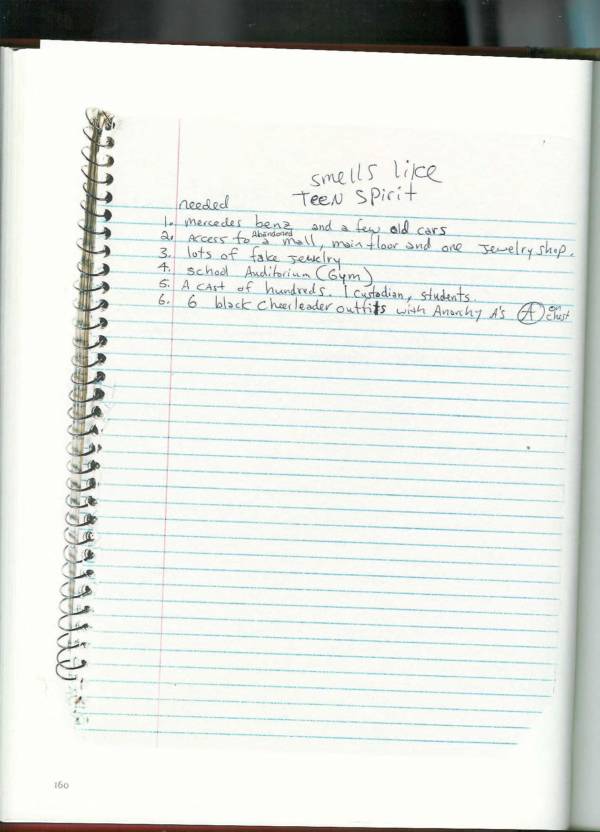 smells like
TEEN SPIRIT
needed
1. mercedes benz and a few old cars
2. Access to a Abandoned mall, main floor and one Jewelry shop.
3. lots of fake jewelry
4. school Auditorium (Gym)
5. A cast of hundreds. 1 custodian, students.
6. 6 black Cheerleader outfits with Anarchy A's Ⓐ on chest
160